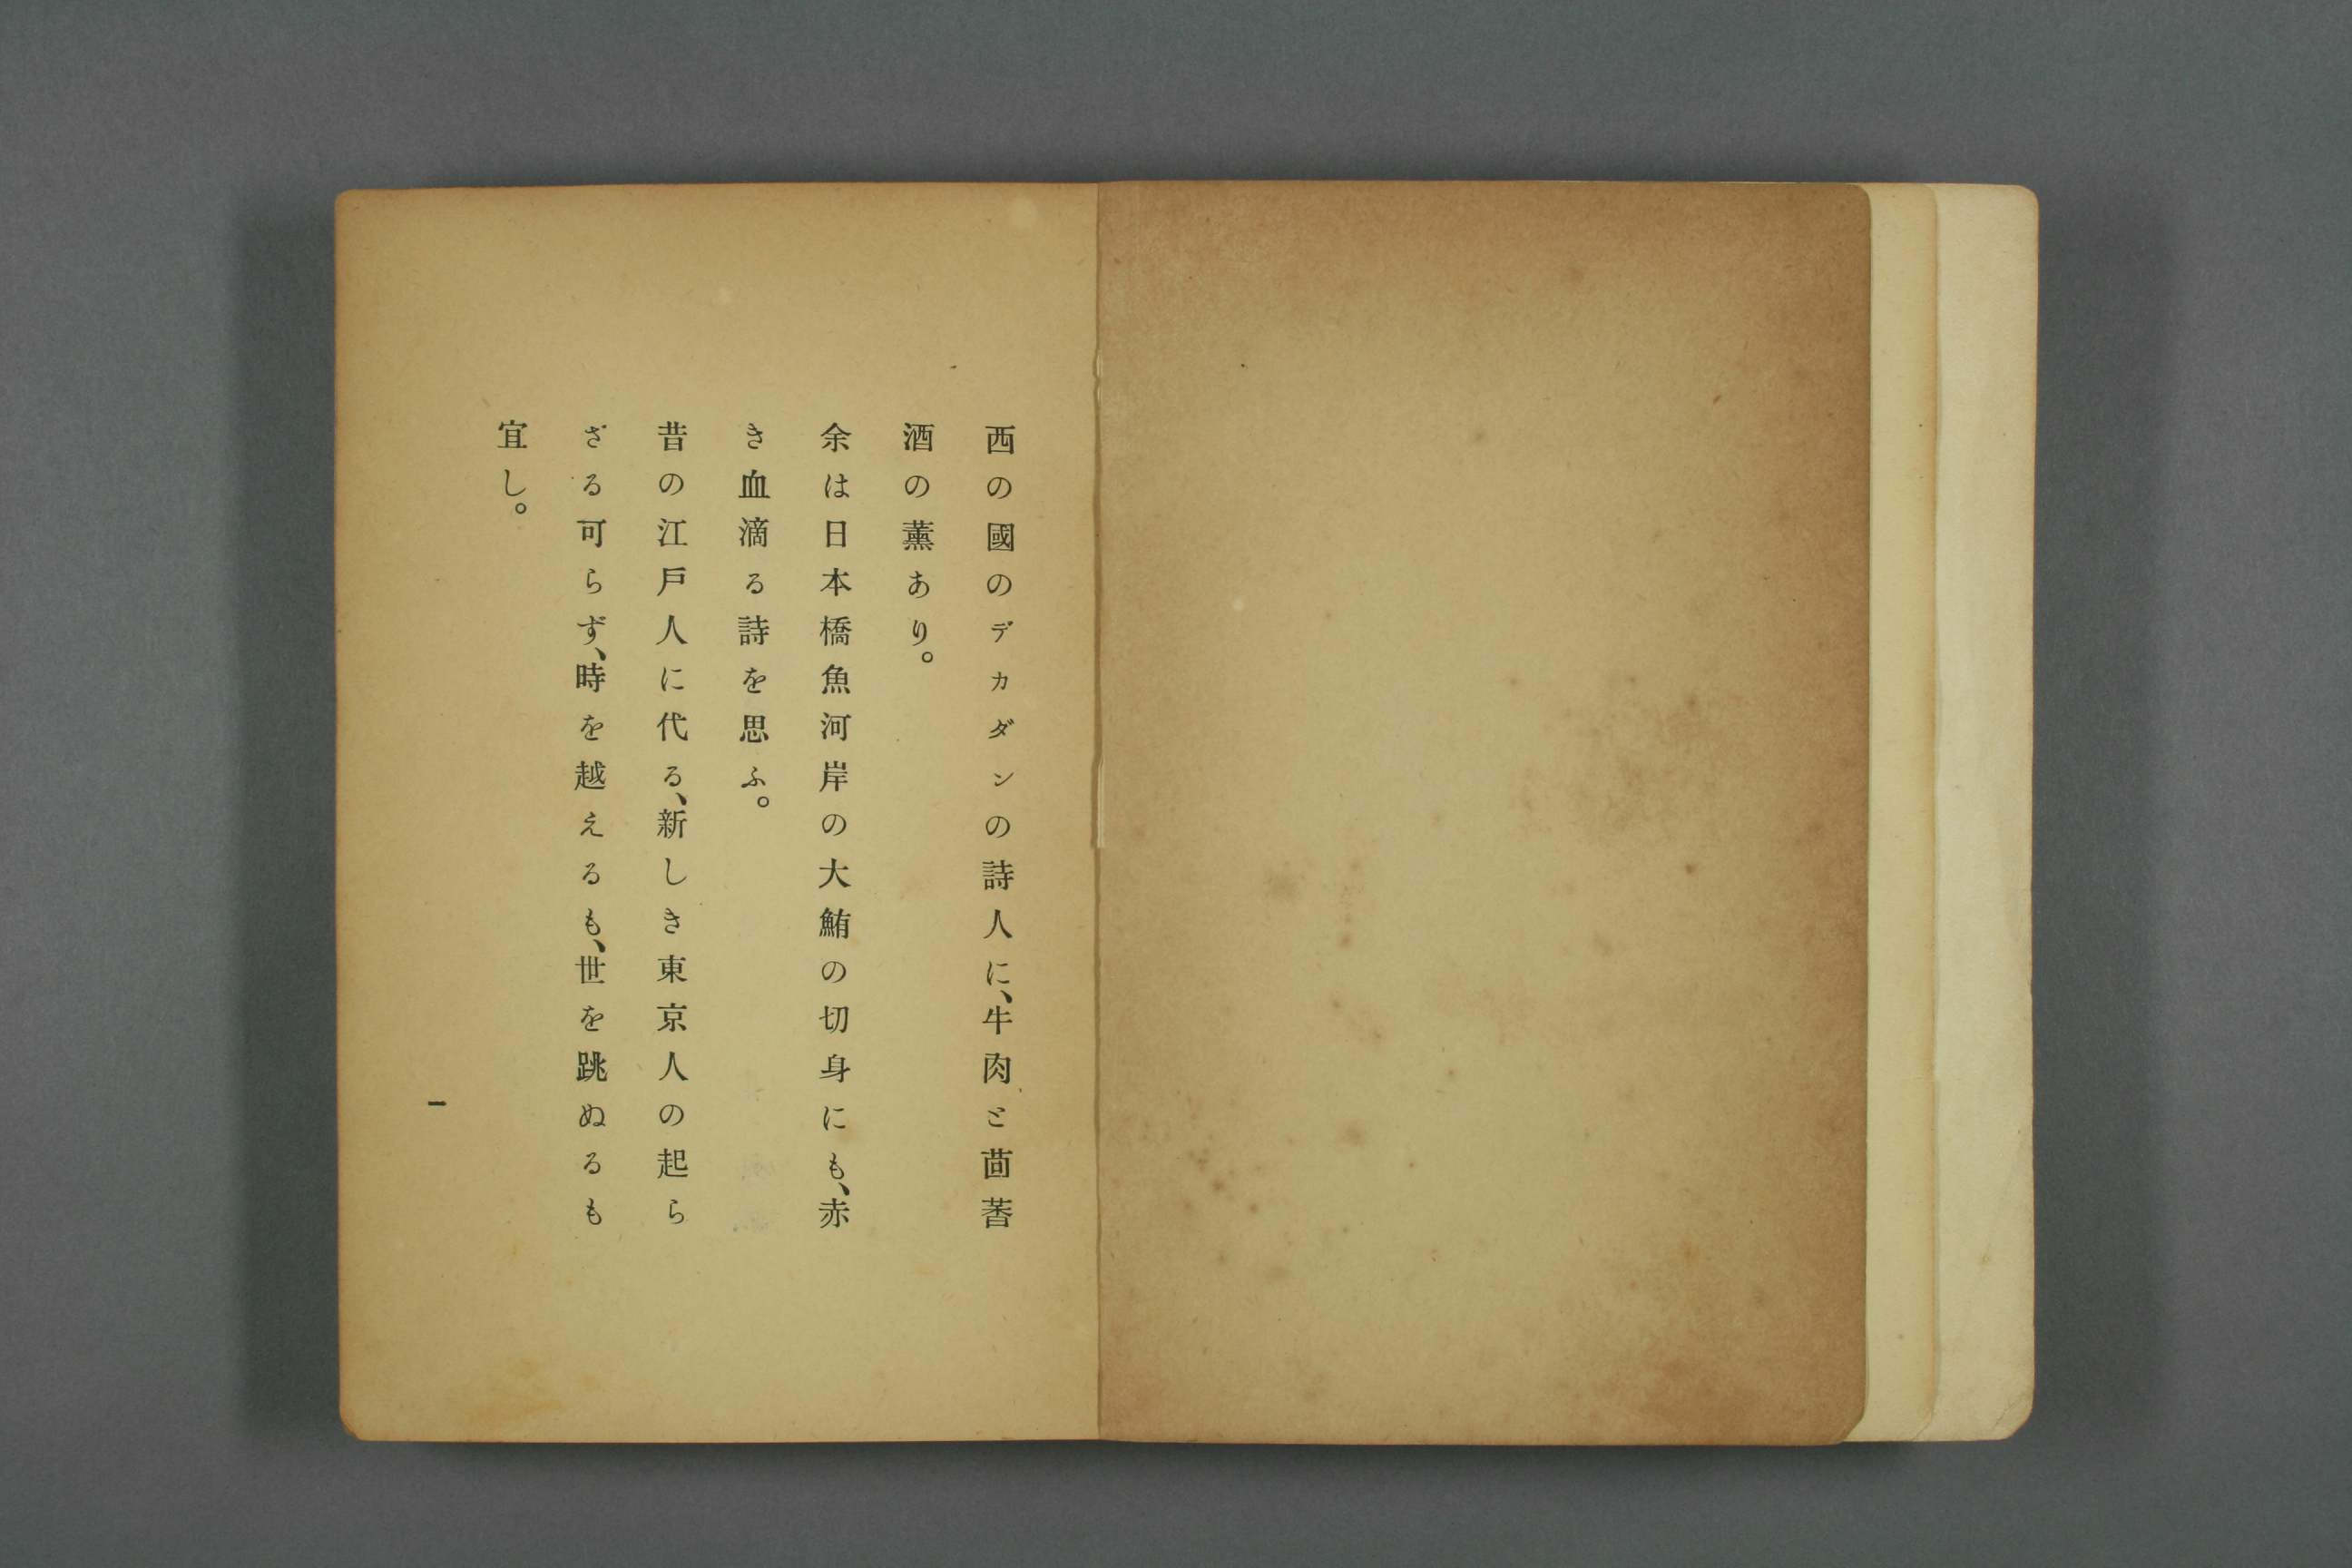 西の國のデカダンの詩人に、牛肉と茴蓍
酒の薫あり。
余は日本橋魚河岸の大鮪の切身にも、赤
き血滴る詩を思ふ。
昔の江戸人に代る、新しき東京人の起ら
ざる可らず、時を越えるも、世を跳ぬるも
宜し。
一